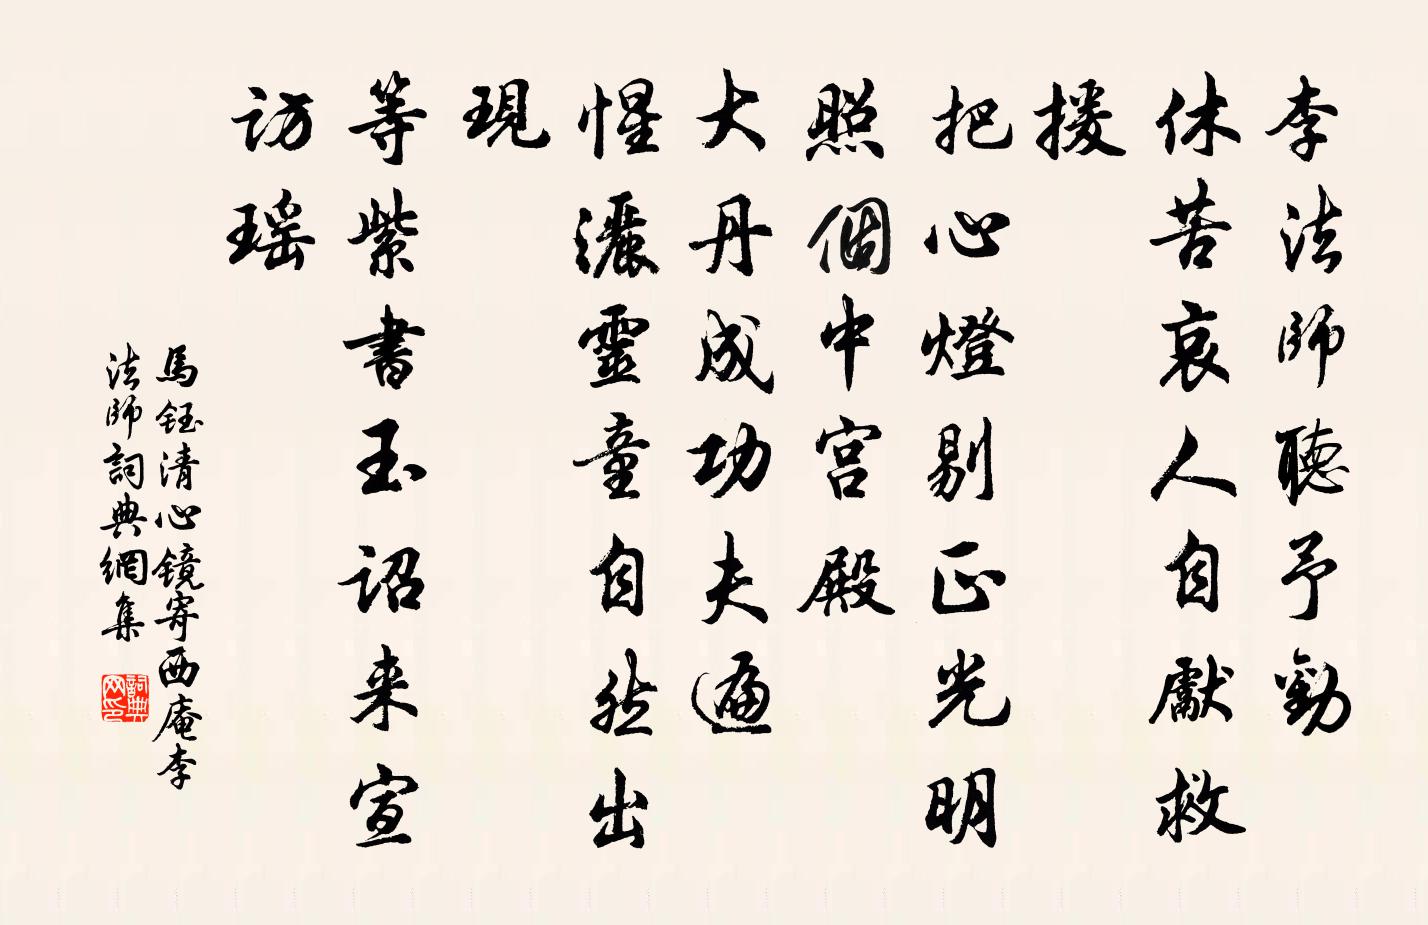 李法師聽予勸
休苦哀人自獻救
援
把心燈剔正光明
照個中宫殿
大丹成功夫遍
惺灑靈童自然出
現
等紫書玉詔来宣
訪瑶
馬鈺清心鏡寄西庵李
法師詞典網集
詞典
网印